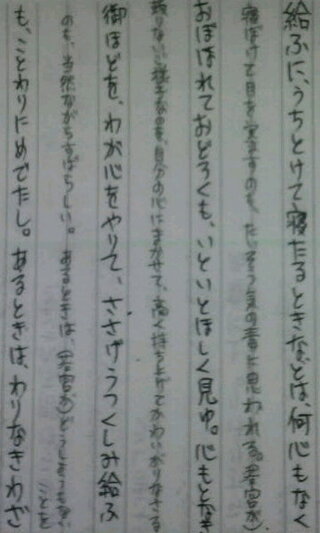 給ふに、うちとけて寝たるときなどは、何心もなく
寝ぼけて目を覚ますのも、たいそう気の毒に思われる。(若宮が)
おぼほれておどろくも、いといとほしく見ゆ。心もとなき
頼りないご様子なのを、自分の心にまかせて、高く持ち上げてかわいがりなさる
御ほどを、わが心をやりて、ささげうつくしみ給ふ
のも、当然ながらすばらしい。あるときは、(若宮が)どうしようもない
ことを
も、ことわりにめでたし。あるときは、わりなきわざ